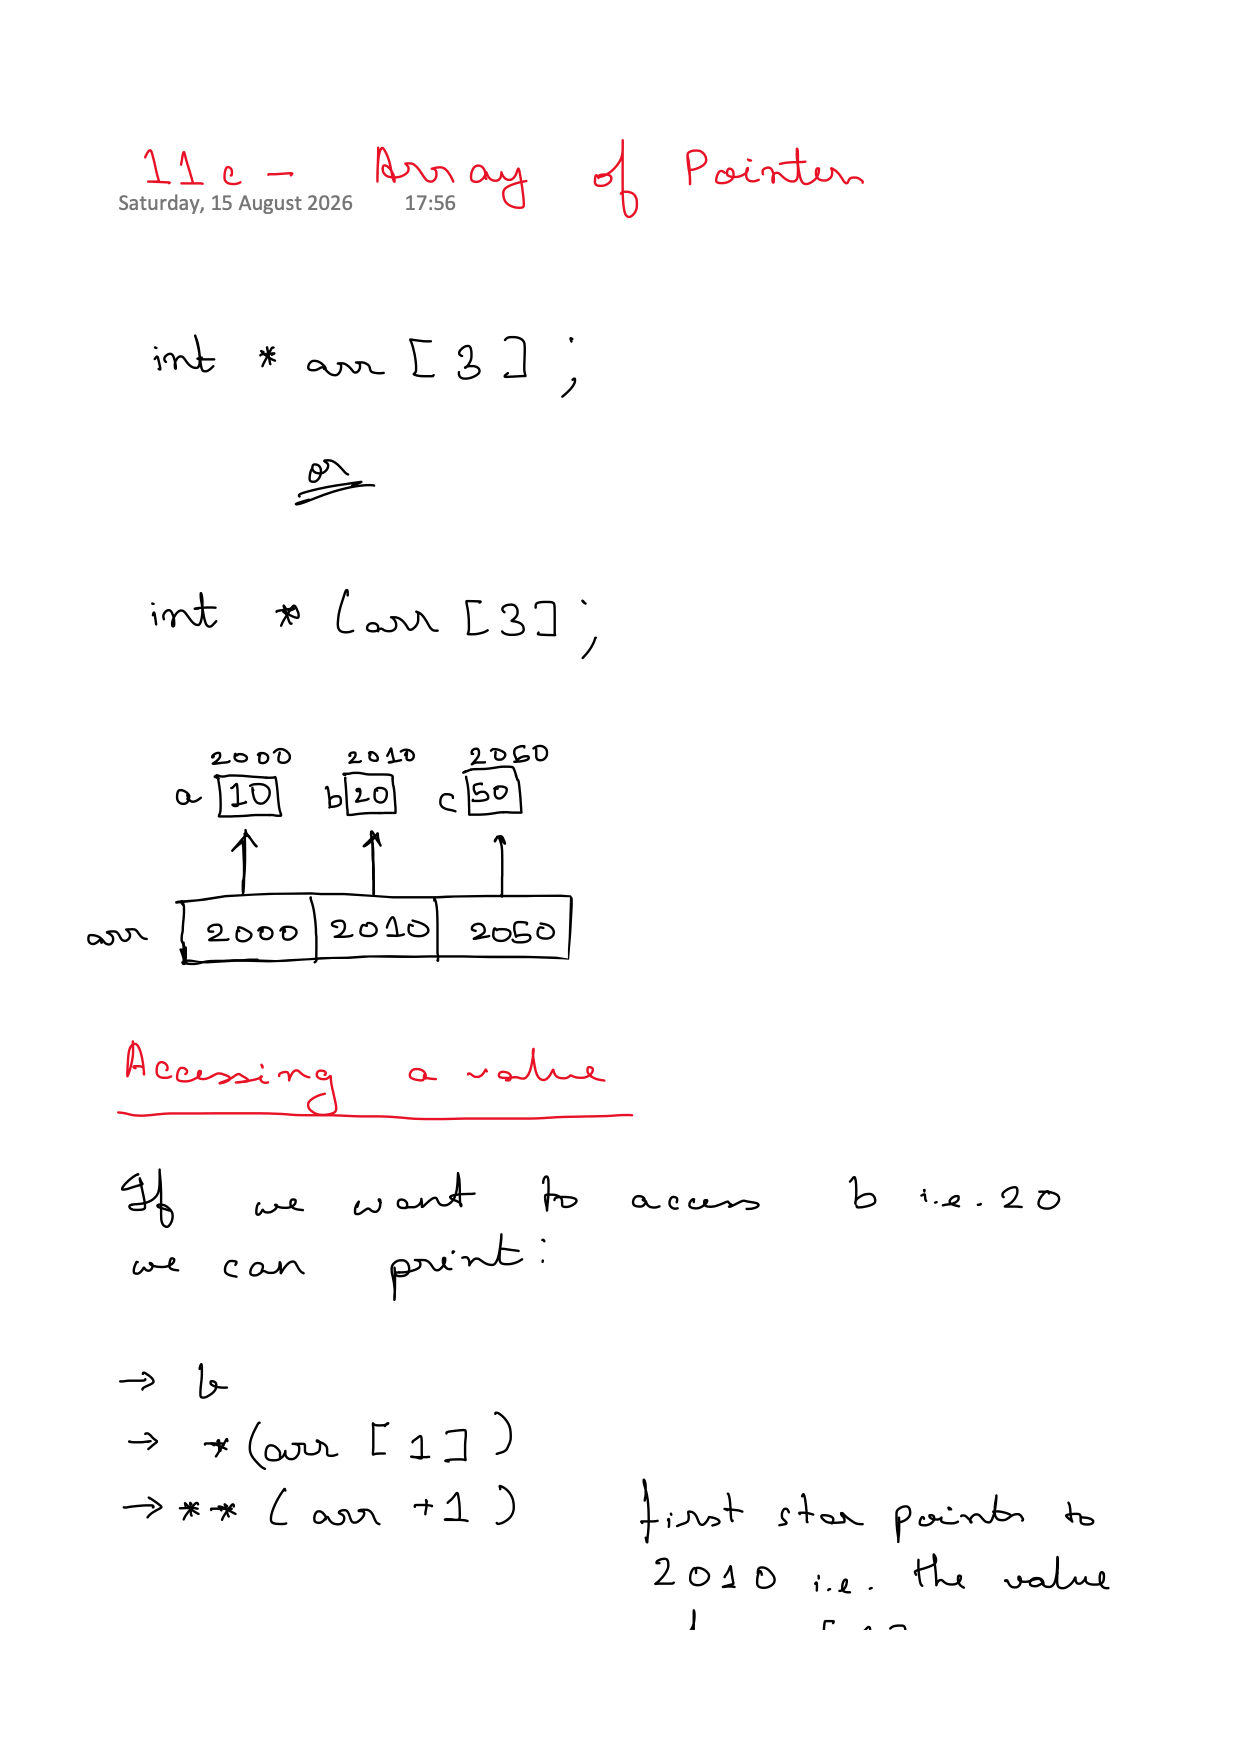 11c - Array of Pointer
Saturday, 15 August 2026 17:56
int * arr [ 3 ] ;
or
int * ( arr [3] ;
2000 2010 2050
a 10 b 20 c 50
arr 2000 2010 2050
Accessing a value
If we want to access b i.e. 20
we can print :
→ b
→ * (arr [ 1 ] )
→ ** ( arr + 1 )
first star points to
2010 i.e. the value